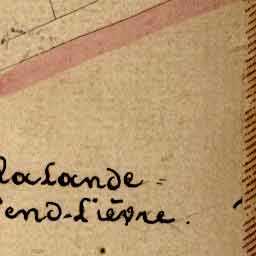 lalande =
end-lièvre.